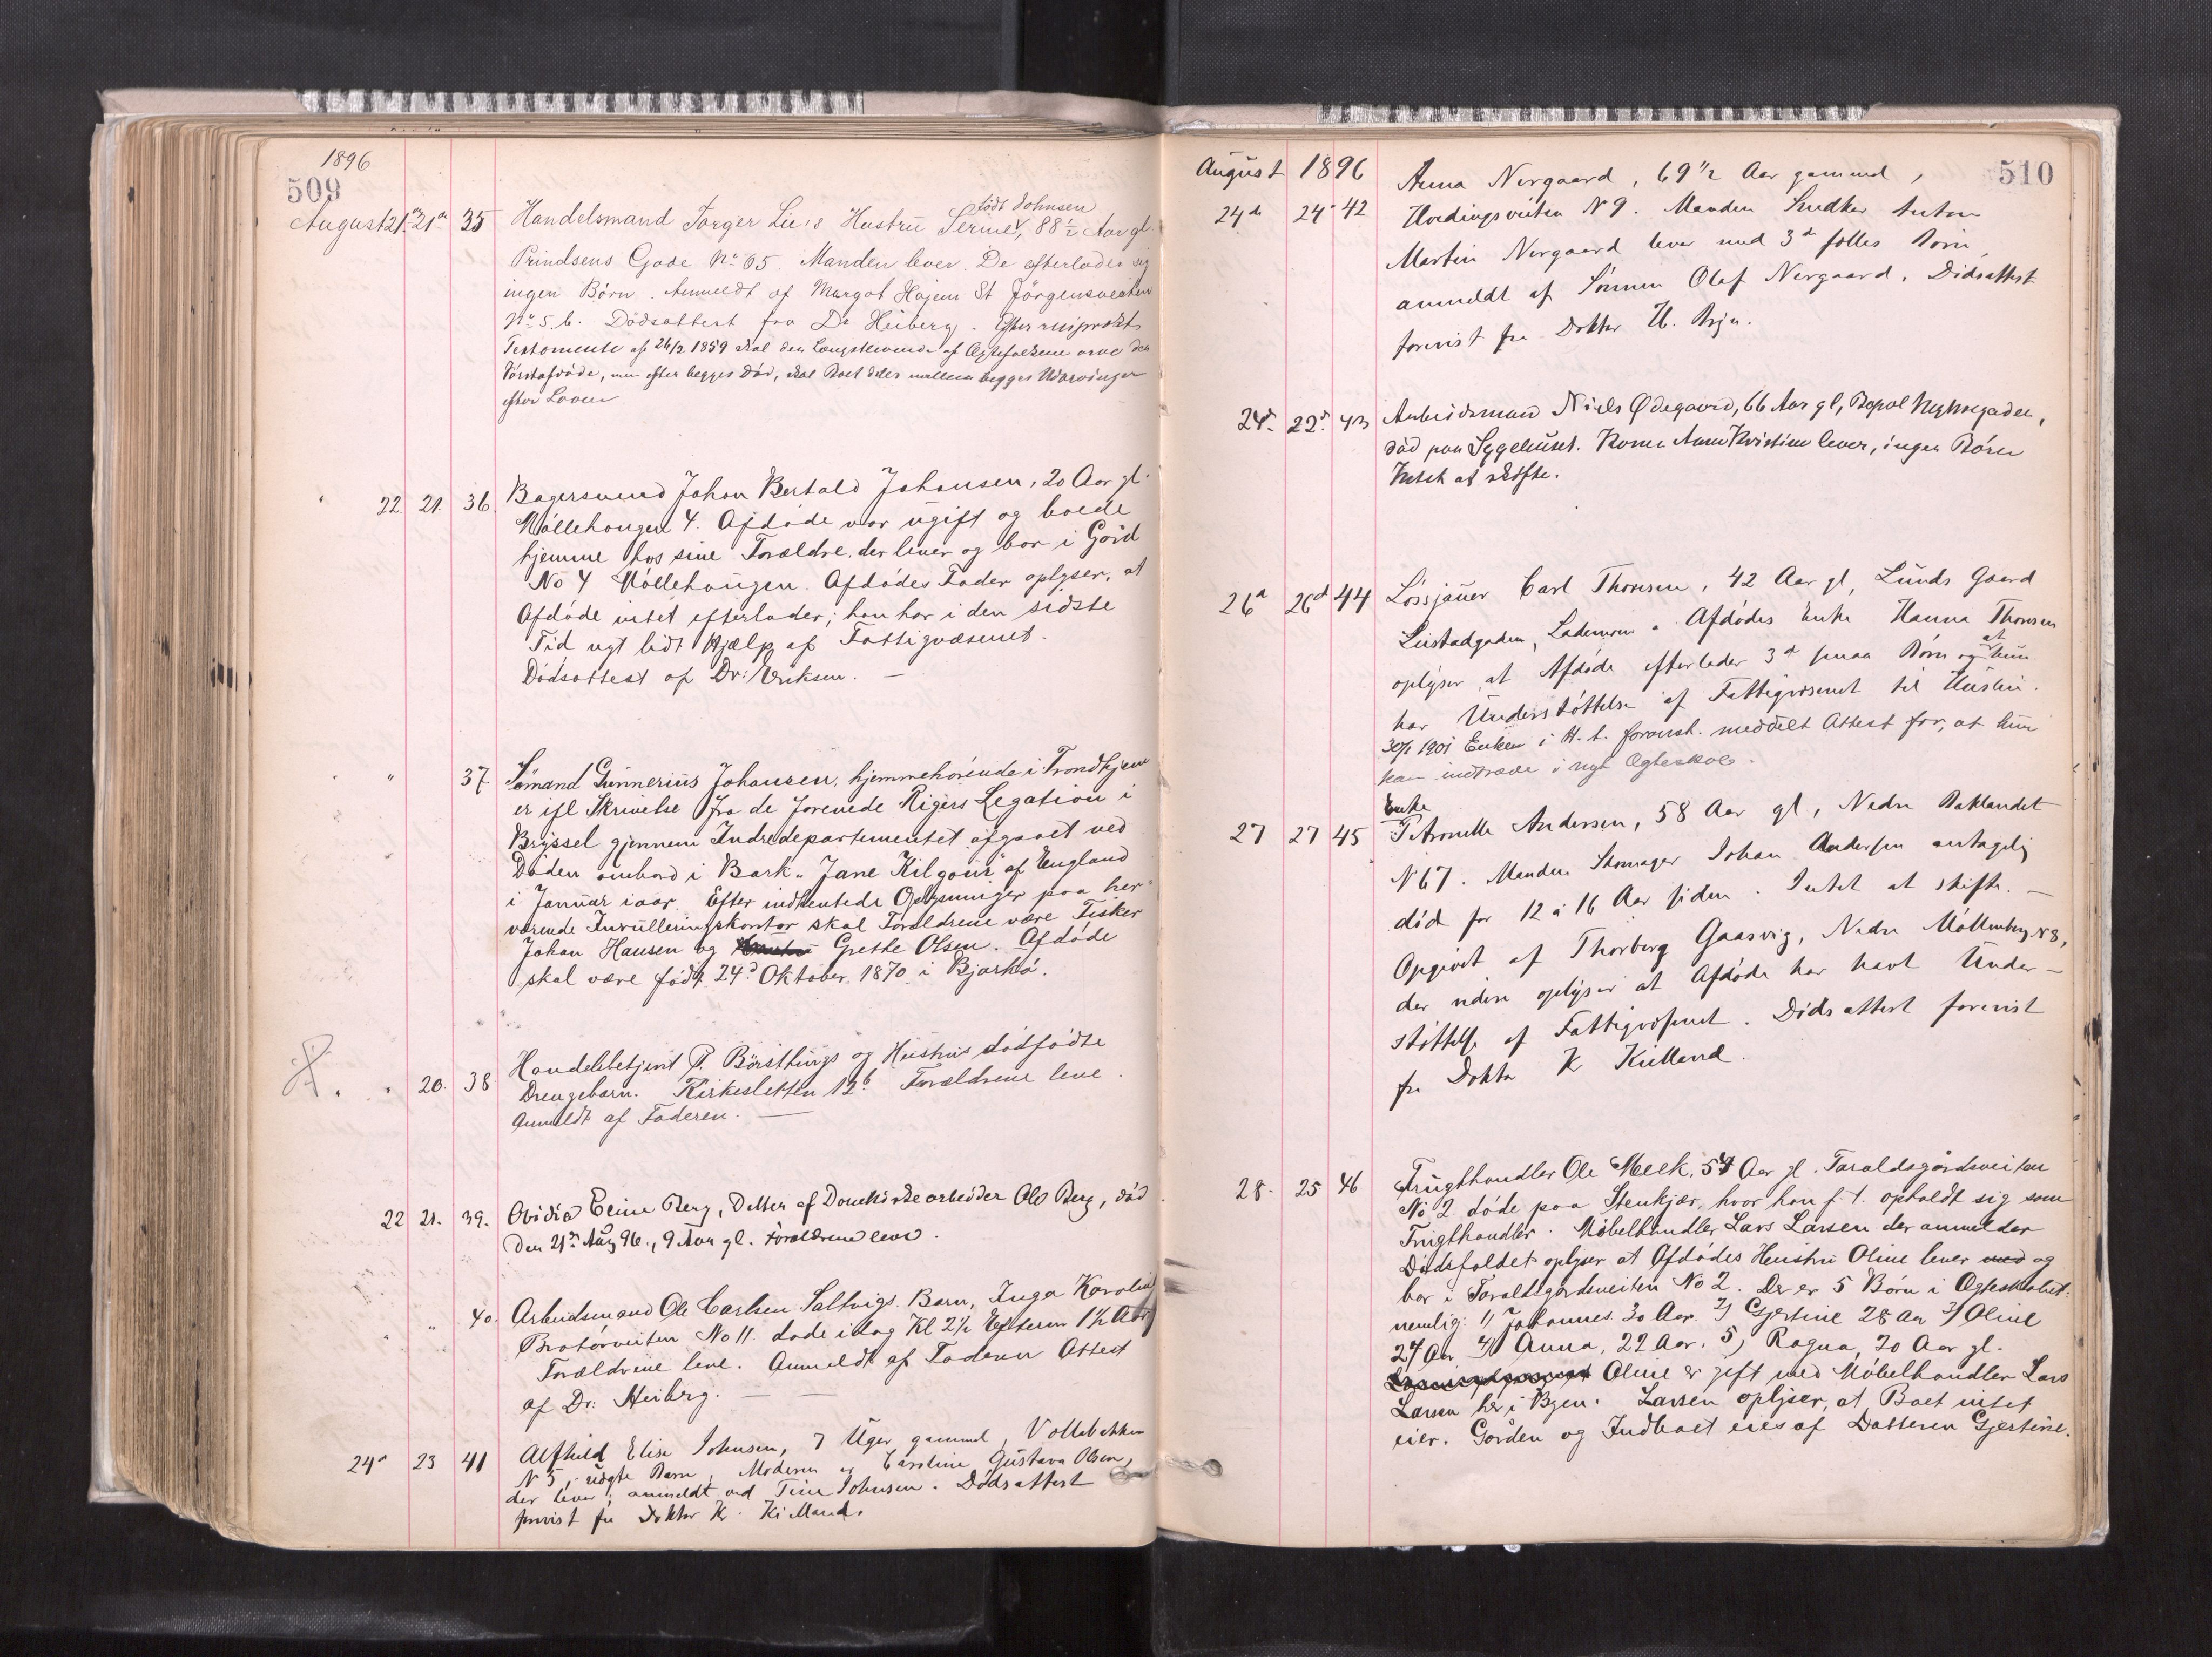 1896
509
August 21d 21d 35 Handelsmand Torger Lie's Hustru Serine, født Johnsen, 88 1/2 Aar gl.
Prindsens Gade No 65. Manden lever. De efterlader sig
ingen Børn. Anmeldt af Margot Hojem St Jörgensveiten
No 5 b. Dödsattest fra Dr Heiberg. Efter resiprokt
Testamente af 26/2 1859 skal den Længstlevende af Ægtefolkene arve den
Förstafdöde, men efter begges Död, skal Boet deles mellem begges Udarvinger
efter Loven
22 21. 36. Bagersvend Johan Bertold Johansen, 20 Aar gl.
Möllehougen 4. Afdöde var ugift og boede
hjemme hos sine Forældre, der lever og bor i Gård
No 4 Möllehougen. Afdödes Fader oplyser, at
Afdöde intet efterlader; han har i den sidste
Tid nyt lidt Hjælp af Fattigvæsenet.
Dödsattest af Dr: Eriksen. —
" 37. Sömand Gunnerius Johansen, hjemmehörende i Trondhjem
er ifl Skrivelse fra de forenede Rigers Legation i
Bryssel gjennem Indredepartementet afgaaet ved
Döden ombord i Bark "Jane Kilgour" af England
i Januar iaar. Efter indhentede Oplysninger paa her-
værende Inrulleringskontor skal Forældrene være Fisker
Johan Hansen og Grethe Olsen. Afdöde
skal være född 24d Oktober 1870 i Bjarkö.
" 20. 38 Handelsbetjent P. Börsethings og Hustrus dödfödte
Drengebarn. Kirkesletten 12b Forældrene leve.
Anmeldt af Faderen. —
22 21. 39. Ovidia Eline Berg, Datter af Domkirkearbeider Ole Berg, död
den 21de Aug 96., 9 Aar gl. Forældrene leve.
" " 40. Arbeidsmand Ole Carlsen Saltvigs Barn, Inga Karoline
Bratörveiten No 11. döde idag Kl 2 1/2 Efterm 1 1/2 Aar
Forældrene leve. Anmeldt af Faderen Attest
af Dr: Heiberg. — —
24d 23 41 Alfhild Elise Johnsen, 7 Uger gammel, Vollabakken
N 5, uægte Barn, Moderen er Caroline Gustava Olsen,
der lever; anmeldt ved Tine Johnsen. Dødsattest
forevist fra Doktor K. Kielland.
August 1896
510
24de 24d 42 Anna Nergaard, 69 1/2 Aar gammel,
Hvedingsveiten N 9. Manden Snedker Anton
Martin Nergaard lever med 3d fælles Børn,
anmeldt af Sønnen Olaf Nergaard. Dødsattest
forevist fra Doktor
24d. 22d. 43 Arbeidsmand Niels Ødegaard, 66 Aar gl, Bopæl Nyhusgaden,
död paa Sygehuset. Konen Anne Kristine lever, ingen Börn
Intet at skifte.
26d 26d 44 Løssjauer Carl Thoresen, 42 Aar gl, Lunds Gaard
Listadgaden, Lademoen. Afdødes Enke Hanna Thoresen
oplyser, at Afdøde efterlader 3d smaa Børn og at hun
har Understøttelse af Fattigvæsenet til Husleie.
30/1 1901 Enken i H. t. foranst. meddelt Attest for, at hun
kan indtræde i nyt Ægteskab.
27 27 45 Enke Petronelle Andersen, 58 Aar gl, Nedre Baklandet
N 67. Manden Skomager Johan Andersen antagelig
død for 12 à 16 Aar siden. Intet at skifte. —
Opgivet af Thorberg Gaasvig, Nedre Møllenberg N 8,
der videre oplyser at Afdøde har havt Under-
støttelse af Fattigvæsenet. Dødsattest forevist
fra Doktor K Kielland.
28. 25 46 Frugthandler Ole Meek, 54 Aar gl. Taraldsgårdsveiten
No 2 döde paa Stenkjær, hvor han f. t. opholdt sig som
Frugthandler. Möbelhandler Lars Larsen der anmelder
Dödsfaldet oplyser at Afdödes Hustru Oline lever med og
bor i Taraldsgårdsveiten No 2. Der er 5 Börn i Ægteskabet.
nemlig: 1/ Johannes 30 Aar. 2/ Gjertine 28 Aar 3/ Oline
24 Aar 4/ Anna, 22 Aar. 5) Ragna, 20 Aar gl.
Oline er gift med Möbelhandler Lars
Larsen her i Byen. Larsen oplyser, at Boet intet
eier. Gården og Indboet eies af Datteren Gjertine.